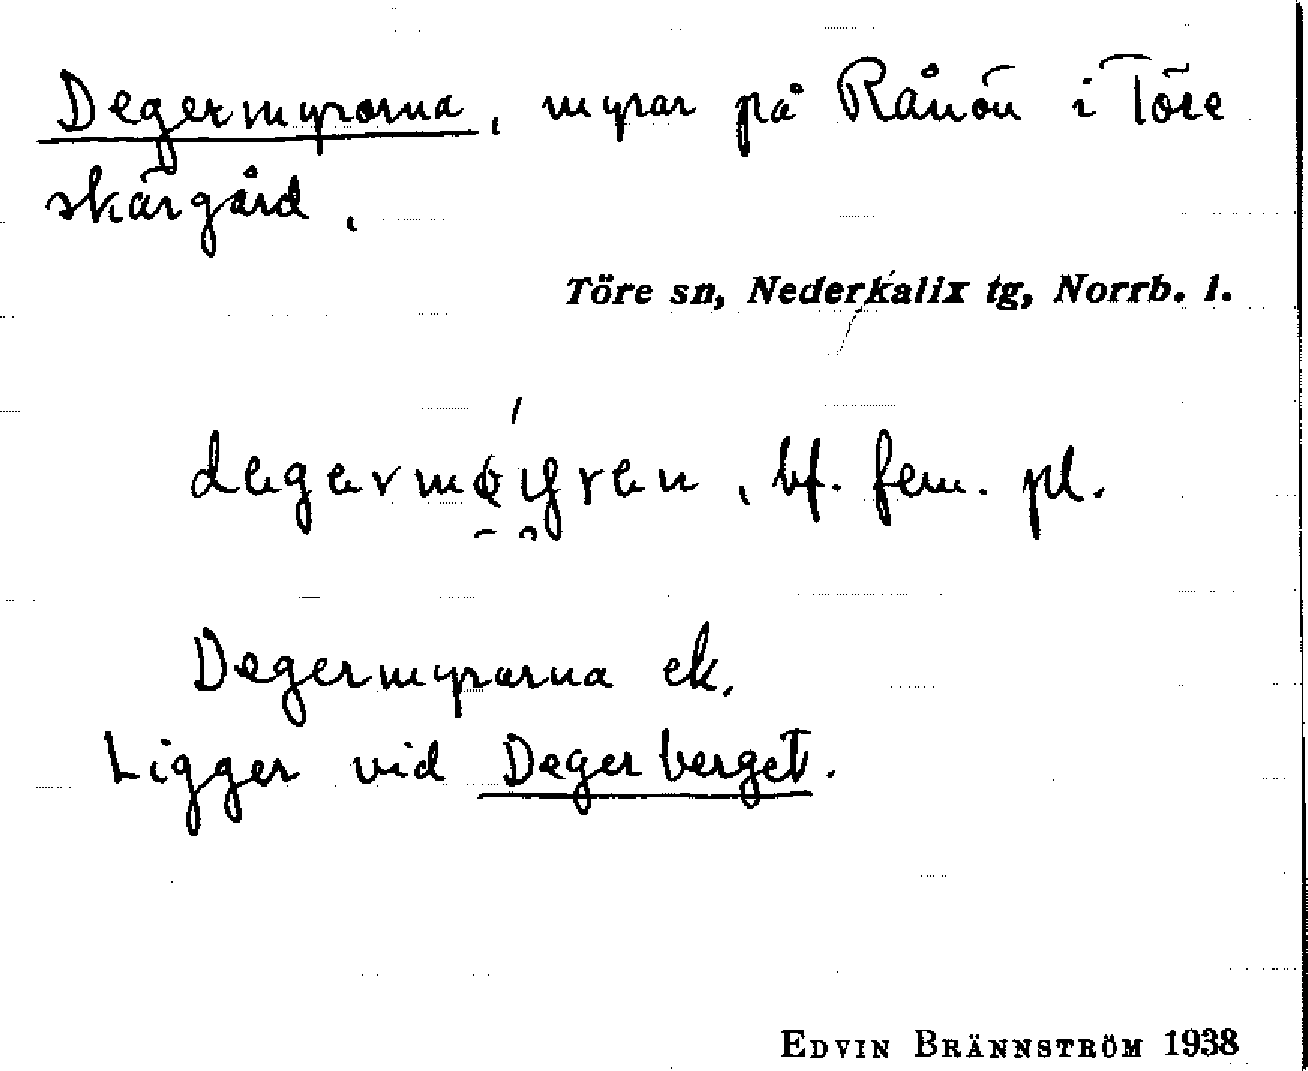 Degermyrarna, myrar på Rånön i Töre
skärgård.
Töre sn, Nederkalix tg, Norrb. l.
bf. fem. pl.
Degermyrarna ek.
Ligger vid Degerberget.
EDVIN BRÄNNSTRÖM 1938